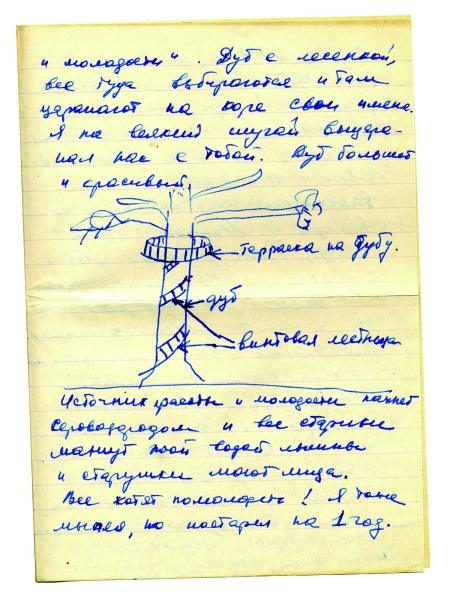 и молодости". Дуб с лесенкой,
все туда взбираются и там
царапают на коре свои имена.
Я на всякий случай выцара-
пал нас с тобой. Дуб большой
и красивый.
терраска на дубу.
дуб
винтовая лестница
Источник красоты и молодости пахнет
сероводородом и все старики
мажут этой водой лысины
и старушки моют лица.
Все хотят помолодеть! Я тоже
мылся, но постарел на 1 год.